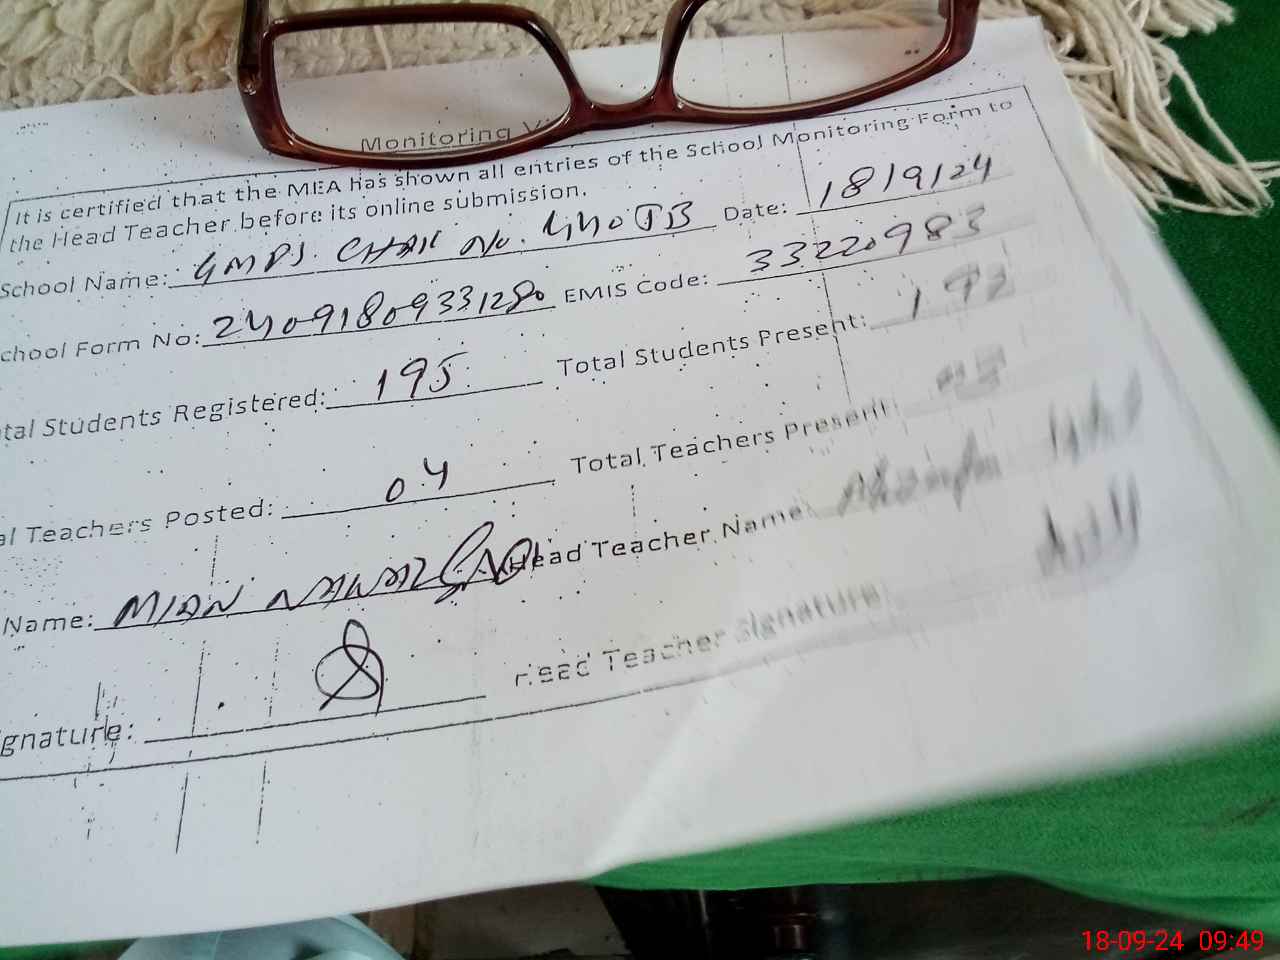 Monitoring
It is certified that the MEA has shown all entries of the School Monitoring Form to
the Head Teacher before its online submission.
School Name: GMPS. CHAK No. 440 JB Date: 18/9/24
chool Form No: 24091809331280 EMIS Code: 33220983
tal Students Registered: 195 Total Students Present: 192
al Teachers Posted: 04 Total Teachers Present:
Name: MIAN NAWAZ Head Teacher Name:
gnature: Head Teacher Signature:
18-09-24 09:49